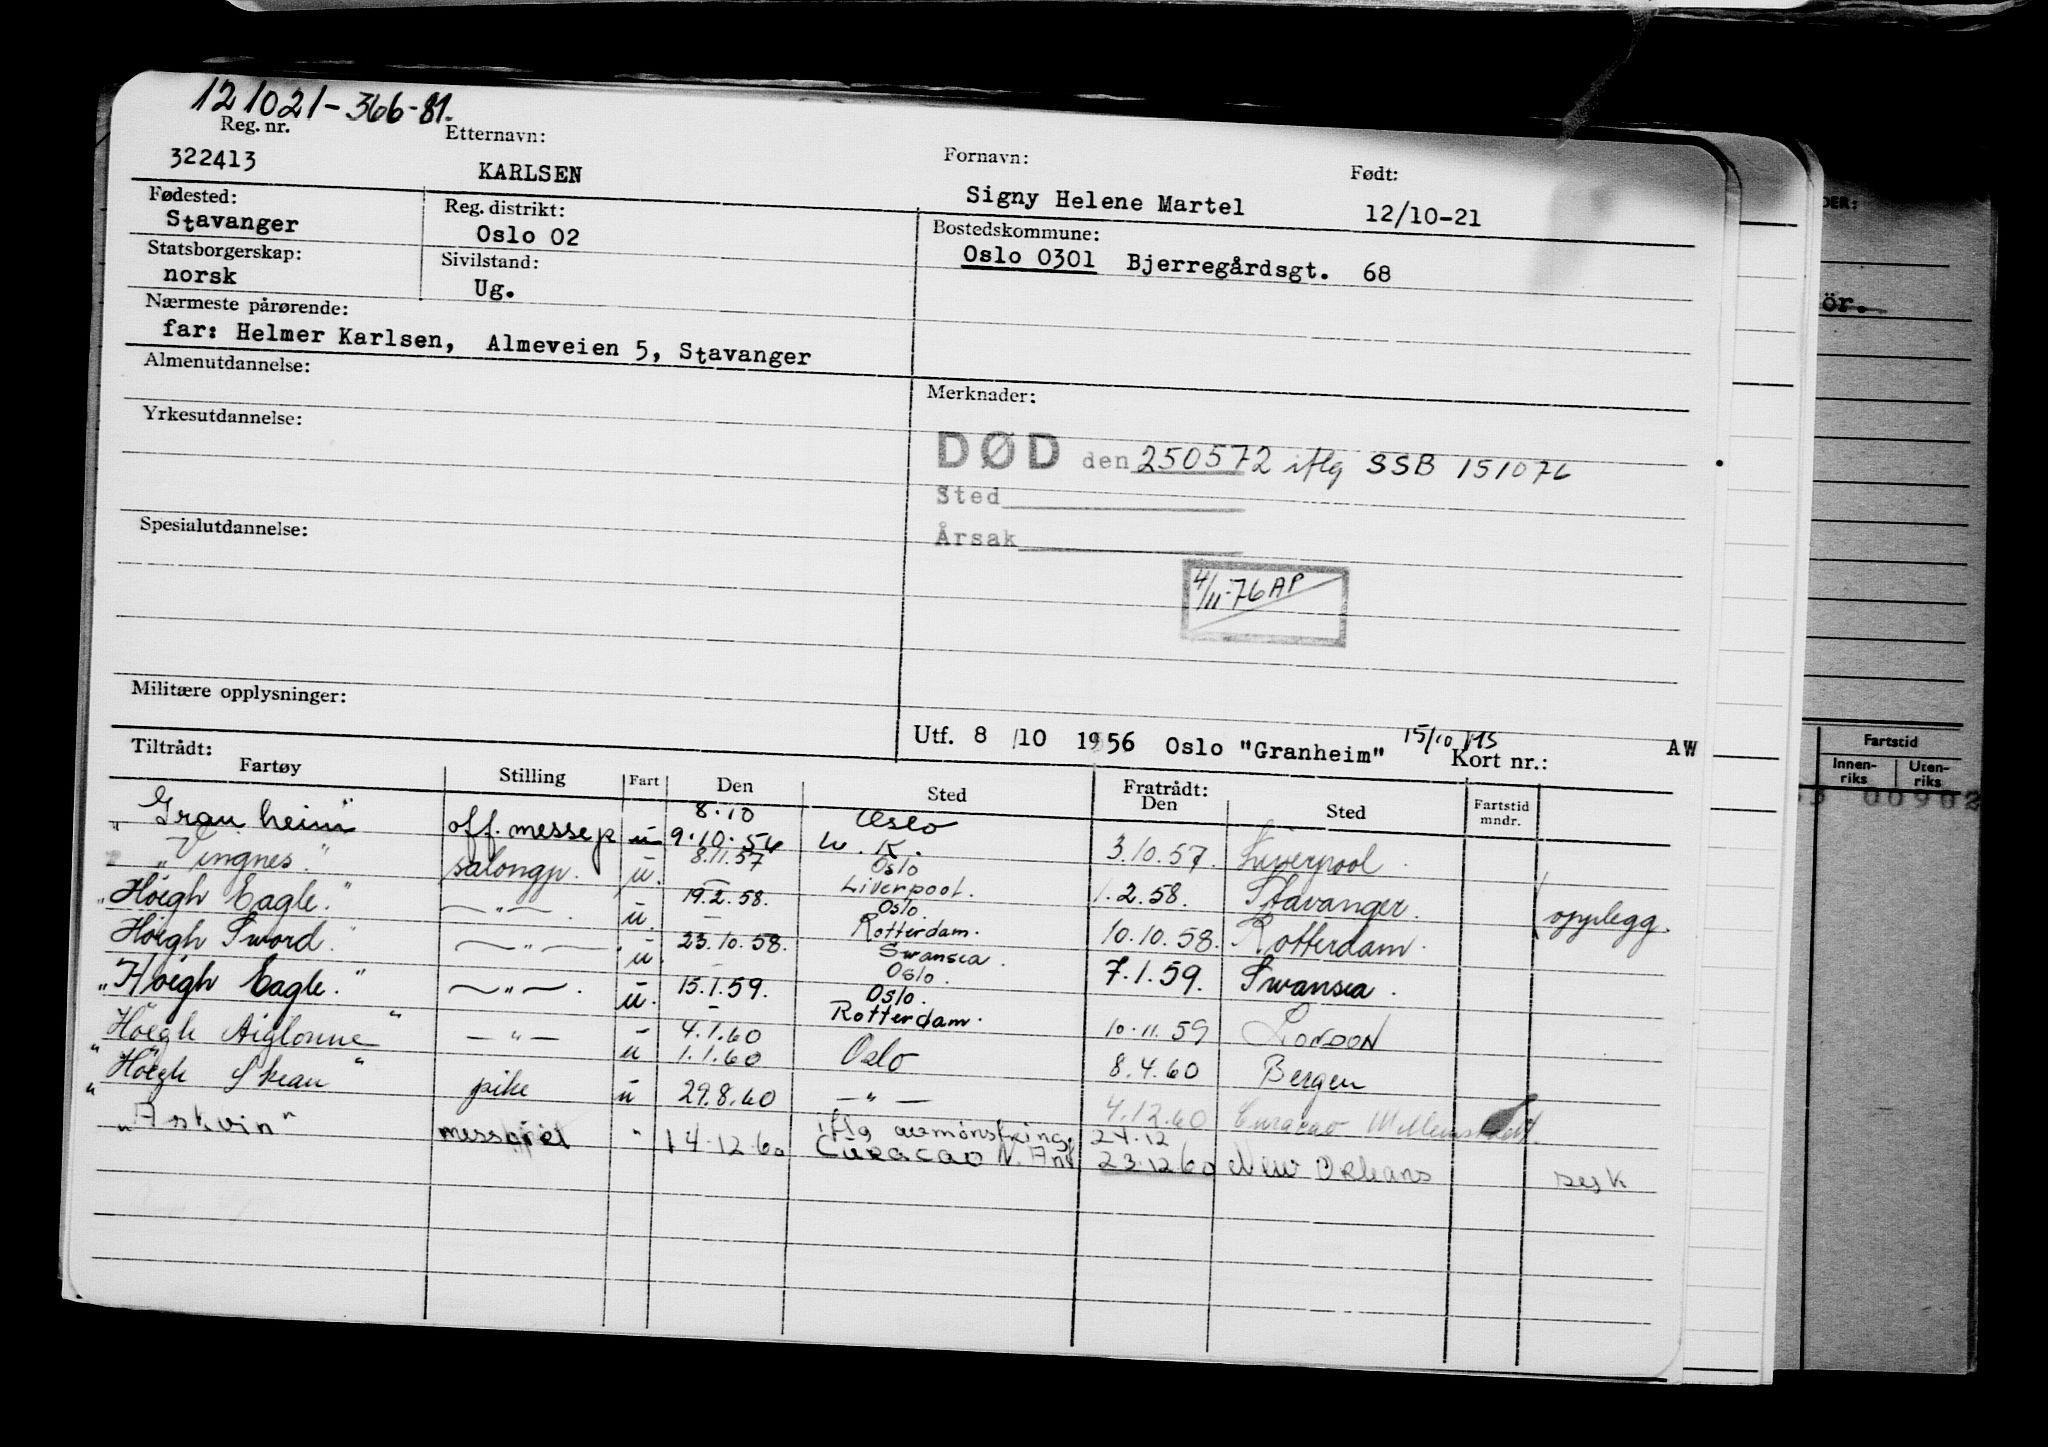 121021-366-81.
Reg. nr. Etternavn: Fornavn: Født:
322413 KARLSEN Signy Helene Martel 12/10-21
Fødested: Reg. distrikt: Bostedskommune:
Stavanger Oslo 02 Oslo 0301 Bjerregårdsgt. 68
Statsborgerskap: Sivilstand:
norsk Ug.
Nærmeste pårørende:
far: Helmer Karlsen, Almeveien 5, Stavanger
Almenutdannelse: Merknader:
Yrkesutdannelse:
DØD den 250572 iflg SSB 151076
Sted
Årsak
Spesialutdannelse:
4/11-76 AP
Militære opplysninger:
Utf. 8/10 1956 Oslo "Granheim" 15/10 Kort nr.: AW
Tiltrådt: Fratrådt:
Fartøy Stilling Fart Den Sted Den Sted Fartstid mndr.
8.10 Oslo
"Granheim" off. messep u 9.10.56 W.K. 3.10.57. Liverpool.
"Vingnes." salongp. u. 8.11.57 Oslo Liverpool. 1.2.58. Stavanger. opplegg.
"Høegh Eagle." —"—. u. 19.2.58. Oslo. Rotterdam. 10.10.58. Rotterdam.
Høegh Sword." —"—. u. 23.10.58. Swansea. Oslo. 7.1.59. Swansea.
"Høegh Eagle." —"—. u. 15.1.59. Oslo. Rotterdam. 10.11.59 London
"Høegh Aiglonne" —"— u 4.1.60 1.1.60 Oslo 8.4.60 Bergen
"Høegh Skean" pike u 29.8.60 —"— 4.12.60 Curacao
"Askvin" messpiet " 14.12.60 iflg avmønstring Curacao N. Ant 24.12 23.12.60 New Orleans sesk
DER:
ör.
Fartstid
Innen-riks Uten-riks
00902